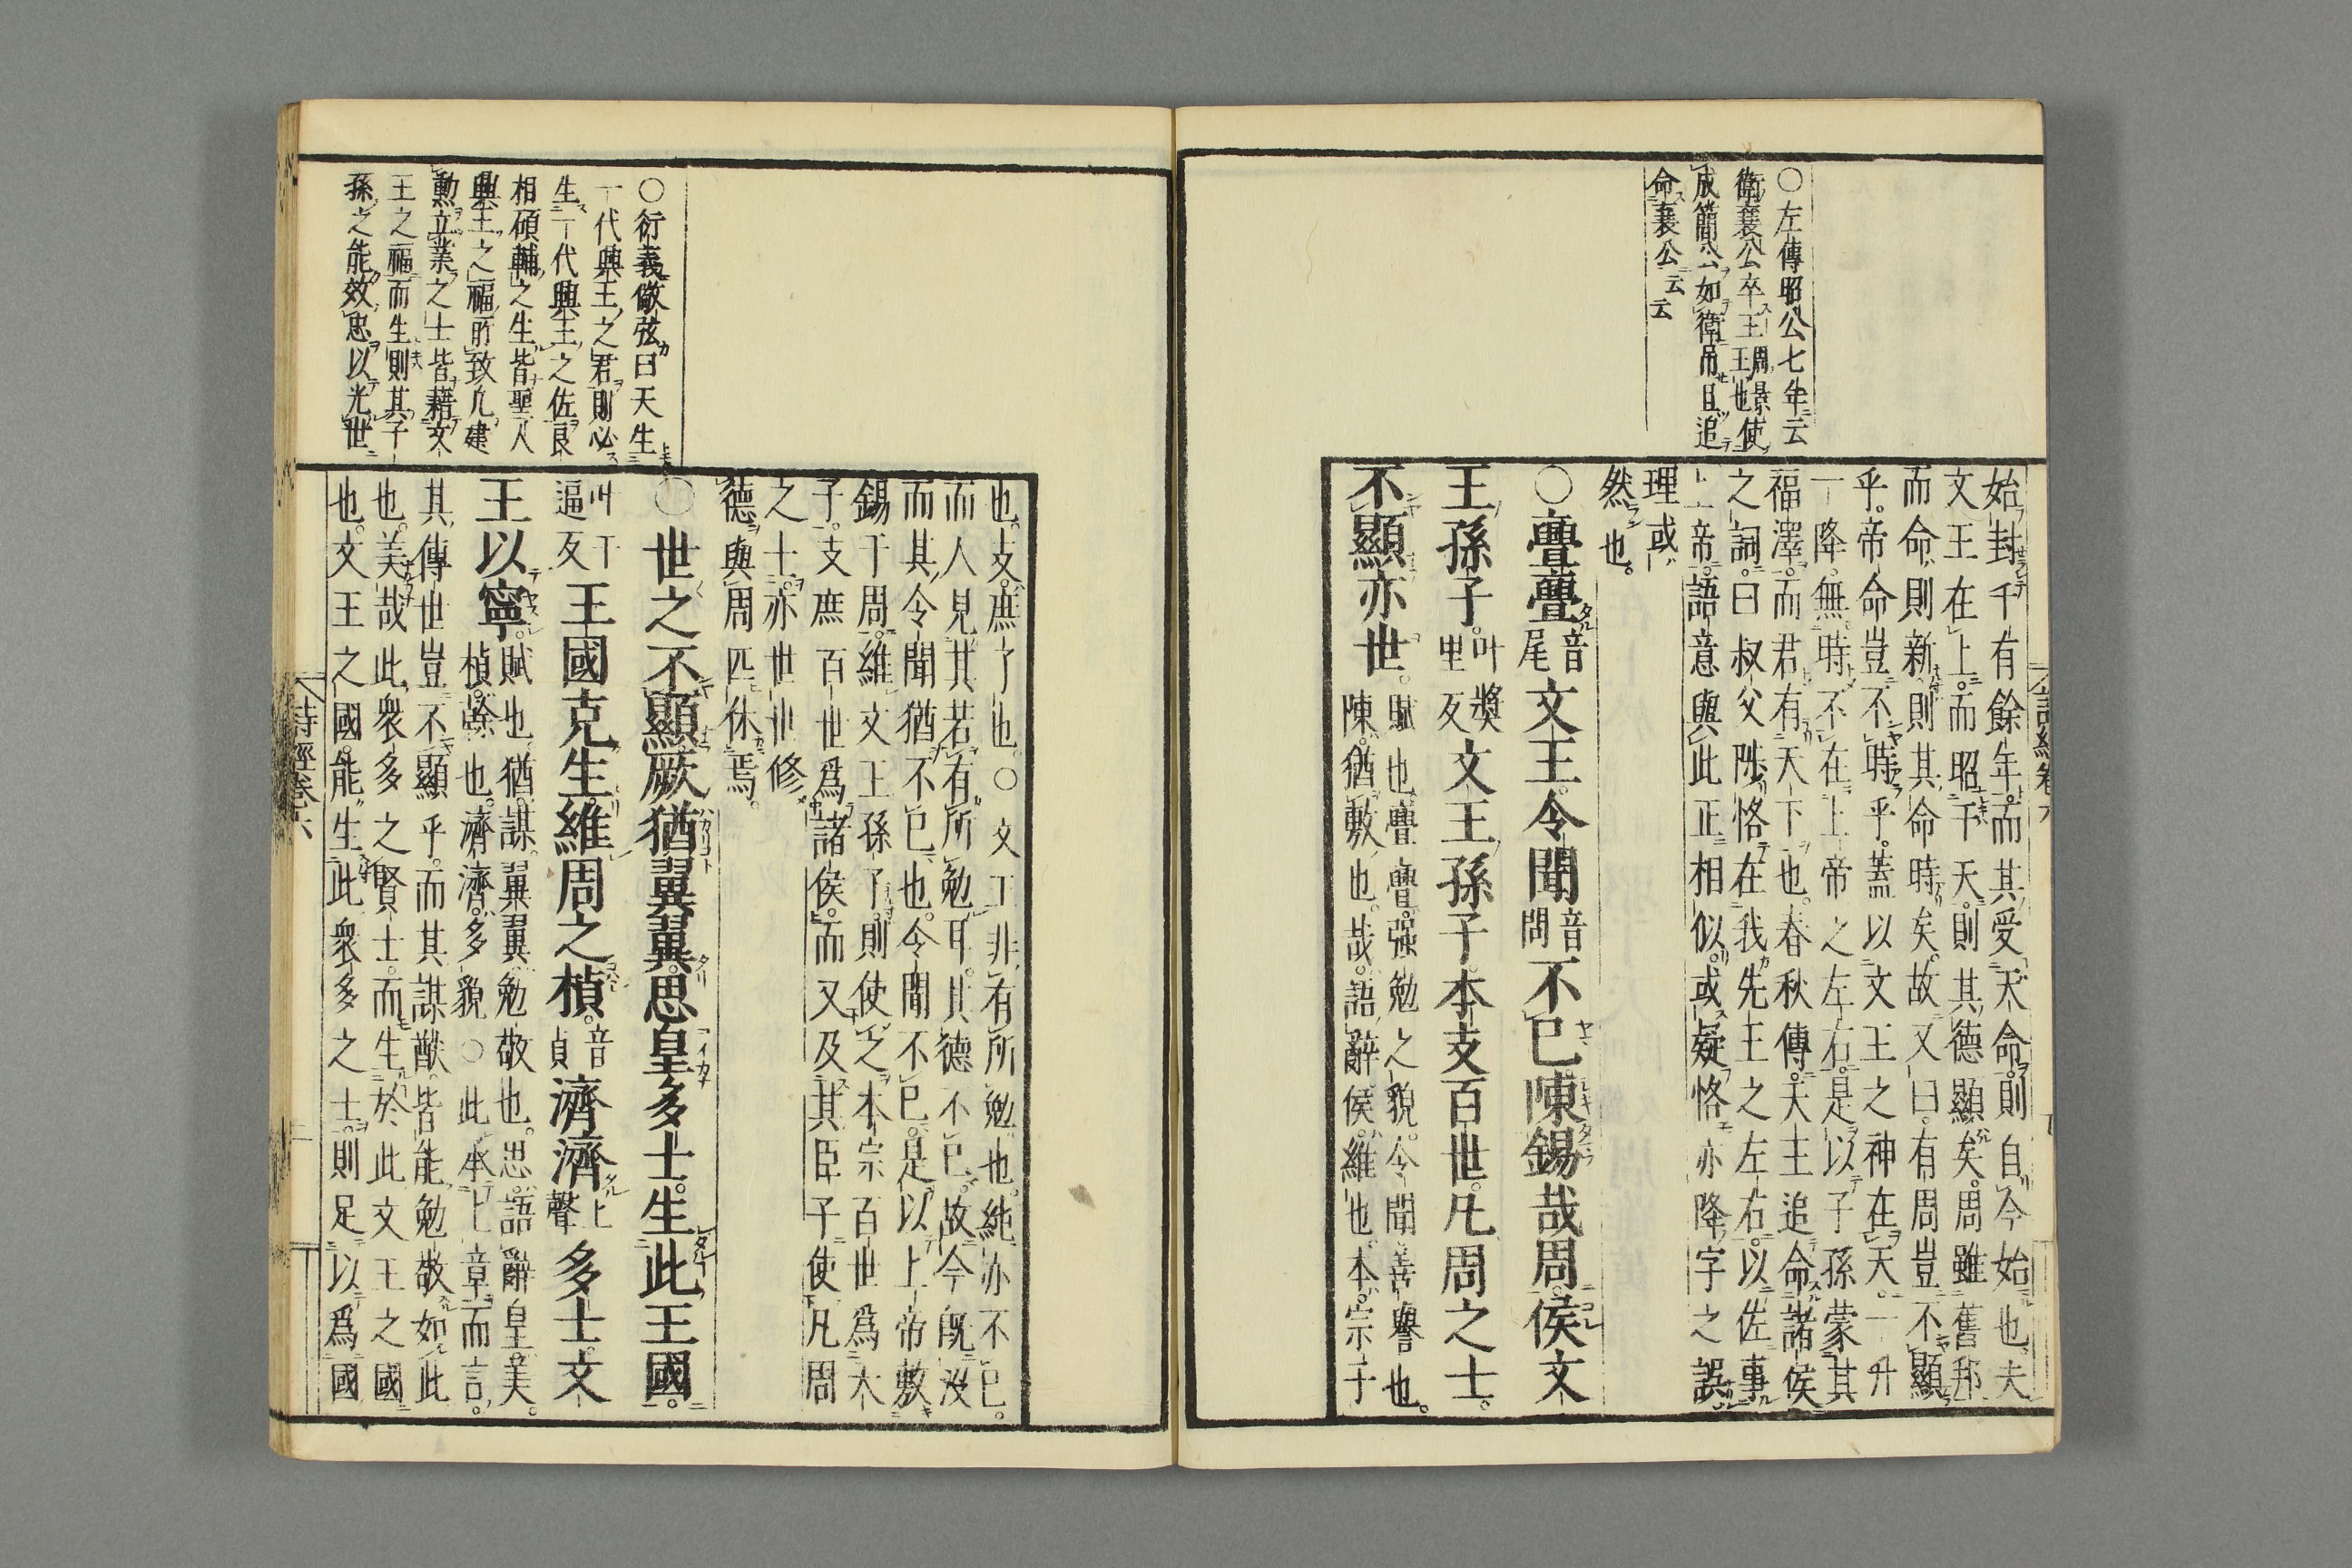 ○左傳昭公七年云
衛襄公卒王周景王也使
成簡公如衛吊且追
命襄公云云
始封千有餘年而其受天命則自今始也夫
文王在上而昭于天則其德顯矣周雖舊邦
而命則新則其命時矣故又曰有周豈不顯
乎帝命豈不時乎蓋以文王之神在天一升
一降無時不在上帝之左右是以子孫蒙其
福澤而君有天下也春秋傳天王追命諸侯
之詞曰叔父陟恪在我先王之左右以佐事
上帝語意與此正相似或疑恪亦降字之誤
理或
然也
○亹亹音尾文王令聞音問不已陳錫哉周侯文
王孫子叶獎里反文王孫子本支百世凡周之士
不顯亦世賦也亹亹強勉之貌令聞善譽也
陳猶敷也哉語辭侯維也本宗子
詩經卷六
○衍義倣弦曰天生
一代興王之君則必
生一代興王之佐良
相碩輔之生皆聖人
興王之福所致凡建
勲立業之士皆藉文
王之福而生則其子
孫之能效忠以光世
也支庶子也○文王非有所勉也純亦不已
而人見其若有所勉耳其德不已故今既沒
而其令聞猶不已也令聞不已是以上帝敷
錫于周維文王孫子則使之本宗百世爲天
子支庶百世爲諸侯而又及其臣子使凡周
之士亦世世修
德與周匹休焉
○世之不顯厥猶翼翼思皇多士生此王國
叶于逼反王國克生維周之楨音貞濟濟上聲多士文
王以寧賦也猶謀翼翼勉敬也思語辭皇美
楨榦也濟濟多貌○此承上章而言
其傳世豈不顯乎而其謀猷皆能勉敬如此
也美哉此衆多之賢士而生於此文王之國
也文王之國能生此衆多之士則足以爲國
詩經卷六